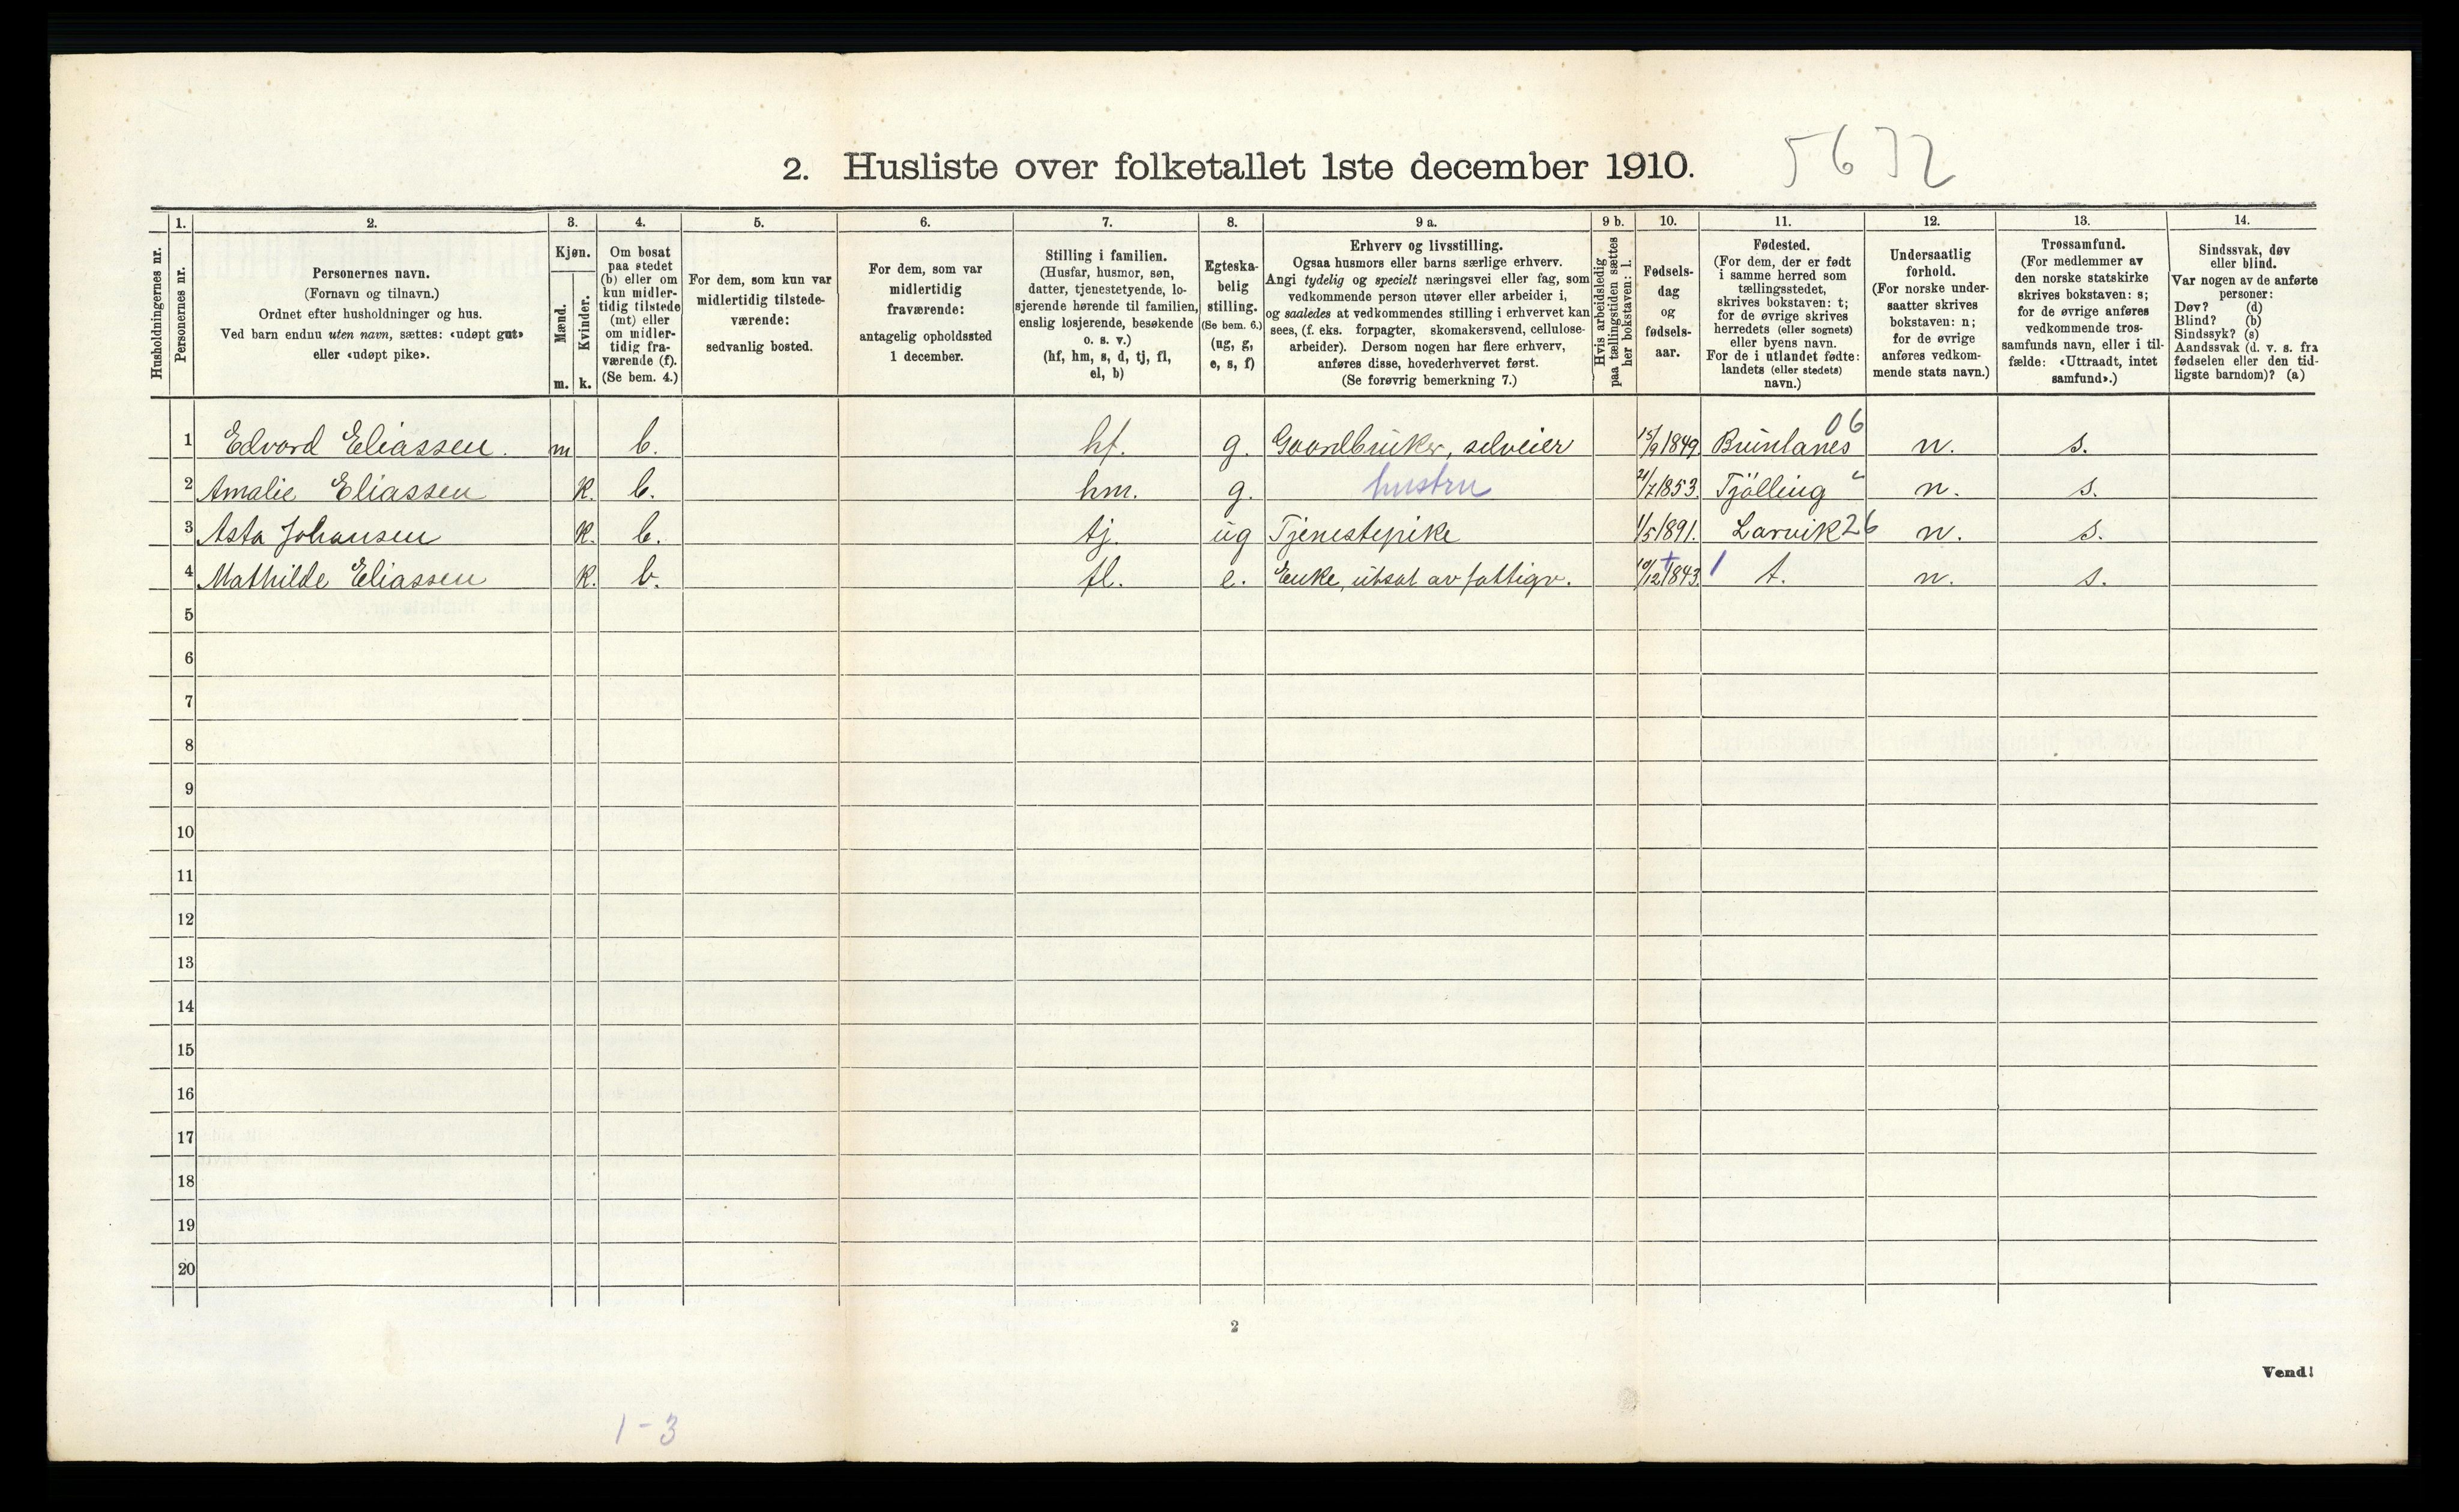 2. Husliste over folketallet 1ste december 1910. 5632
1. 2. 3. 4. 5. 6. 7. 8. 9 a. 9 b. 10. 11. 12. 13. 14.
Husholdningernes nr.
Personernes nr.
Personernes navn.
(Fornavn og tilnavn.)
Ordnet efter husholdninger og hus.
Ved barn endnu uten navn, sættes: «udøpt gut»
eller «udøpt pike».
Kjøn.
Mænd.
Kvinder.
m. k.
Om bosat
paa stedet
(b) eller om
kun midler-
tidig tilstede
(mt) eller
om midler-
tidig fra-
værende (f).
(Se bem. 4.)
For dem, som kun var
midlertidig tilstede-
værende:
sedvanlig bosted.
For dem, som var
midlertidig
fraværende:
antagelig opholdssted
1 december.
Stilling i familien.
(Husfar, husmor, søn,
datter, tjenestetyende, lo-
sjerende hørende til familien,
enslig losjerende, besøkende
o. s. v.)
(hf, hm, s, d, tj, fl,
el, b)
Egteska-
belig
stilling.
(Se bem. 6.)
(ug, g,
e, s, f)
Erhverv og livsstilling.
Ogsaa husmors eller barns særlige erhverv.
Angi tydelig og specielt næringsvei eller fag, som
vedkommende person utøver eller arbeider i,
og saaledes at vedkommendes stilling i erhvervet kan
sees, (f. eks. forpagter, skomakersvend, cellulose-
arbeider). Dersom nogen har flere erhverv,
anføres disse, hovederhvervet først.
(Se forøvrig bemerkning 7.)
Hvis arbeidsledig
paa tællingstiden sættes
her bokstaven: l.
Fødsels-
dag
og
fødsels-
aar.
Fødested.
(For dem, der er født
i samme herred som
tællingsstedet,
skrives bokstaven: t;
for de øvrige skrives
herredets (eller sognets)
eller byens navn.
For de i utlandet fødte:
landets (eller stedets)
navn.)
Undersaatlig
forhold.
(For norske under-
saatter skrives
bokstaven: n;
for de øvrige
anføres vedkom-
mende stats navn.)
Trossamfund.
(For medlemmer av
den norske statskirke
skrives bokstaven: s;
for de øvrige anføres
vedkommende tros-
samfunds navn, eller i til-
fælde: «Uttraadt, intet
samfund».)
Sindssvak, døv
eller blind.
Var nogen av de anførte
personer:
Døv? (d)
Blind? (b)
Sindssyk? (s)
Aandssvak (d. v. s. fra
fødselen eller den tid-
ligste barndom)? (a)
06
1 Edvard Eliassen. m b. hf. g. Gaardbruker, selveier 15/9 1849. Brunlanes n. s.
2 Amalie Eliassen k. b. hm. g. hustru 21/7 1853. Tjölling " n. s.
3 Asta Johansen k. b. tj. ug Tjenestepike 1/5 1891. Larvik 26 n. s.
4 Mathilde Eliassen k. b. fl. e. Enke, utsat av fattigv. 10/12 1843. t. n. s.
5
6
7
8
9
10
11
12
13
14
15
16
17
18
19
20
2
Vend!
1-3